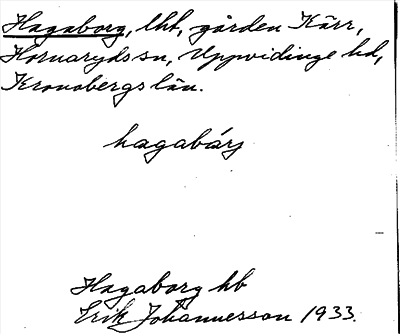 Hagaborg, lht, gården Kärr,
Hornaryds sn, Uppvidinge hd,
Kronobergs län.
hagabárj
Hagaborg hb
Erik Johannesson 1933.